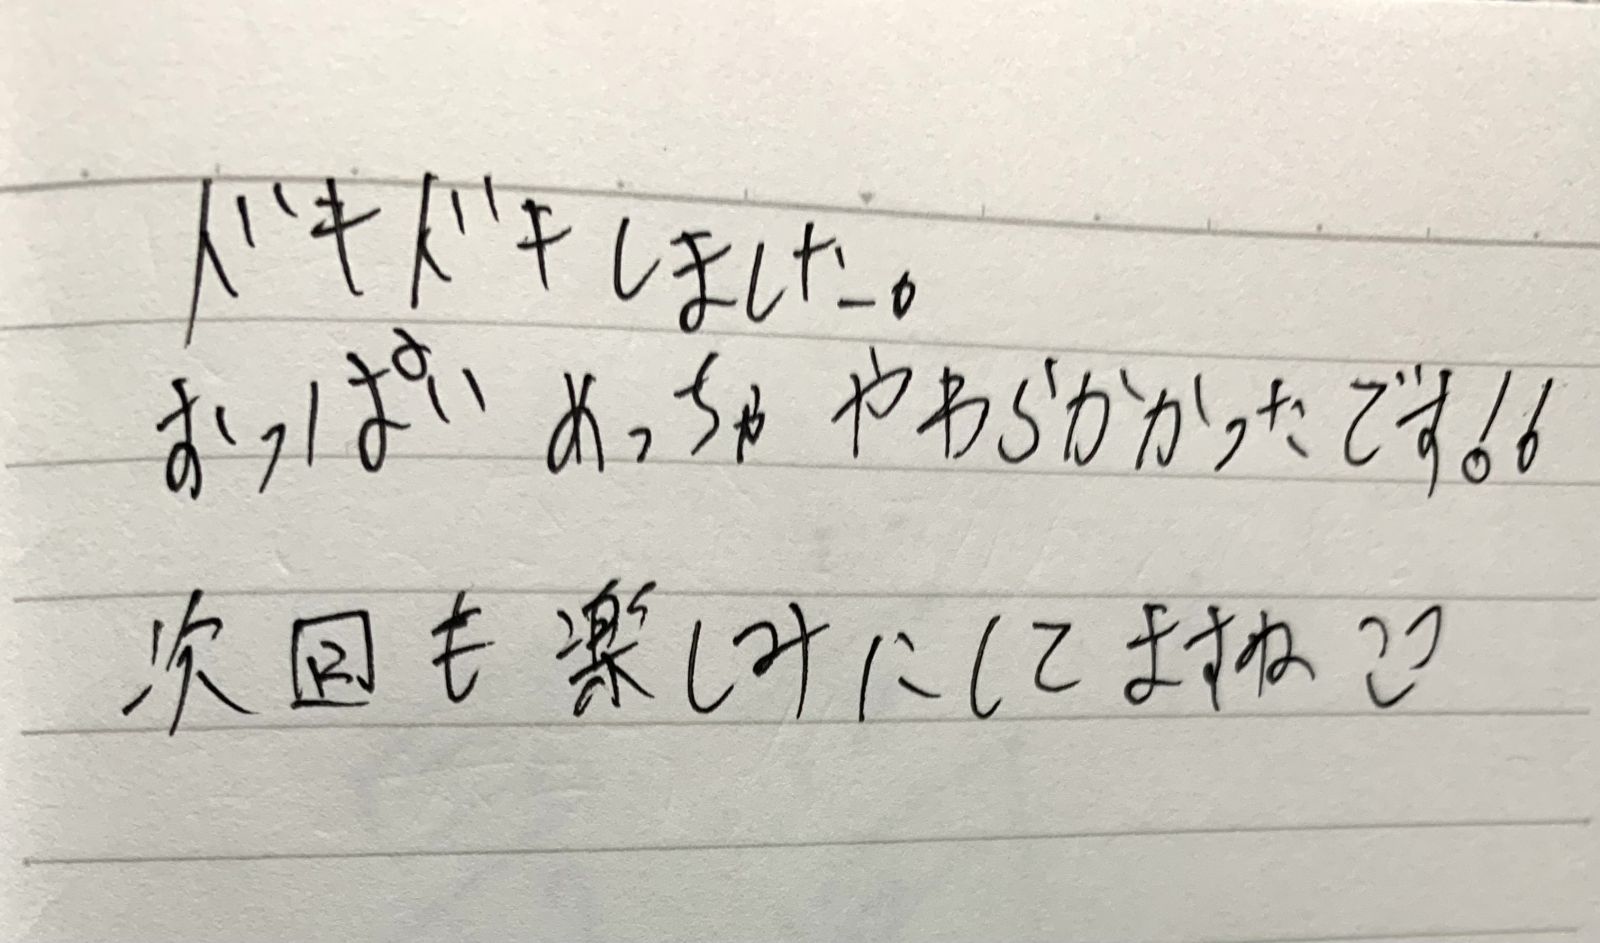 ドキドキしました。
おっぱいめっちゃやわらかかったです!!
次回も楽しみにしてますね